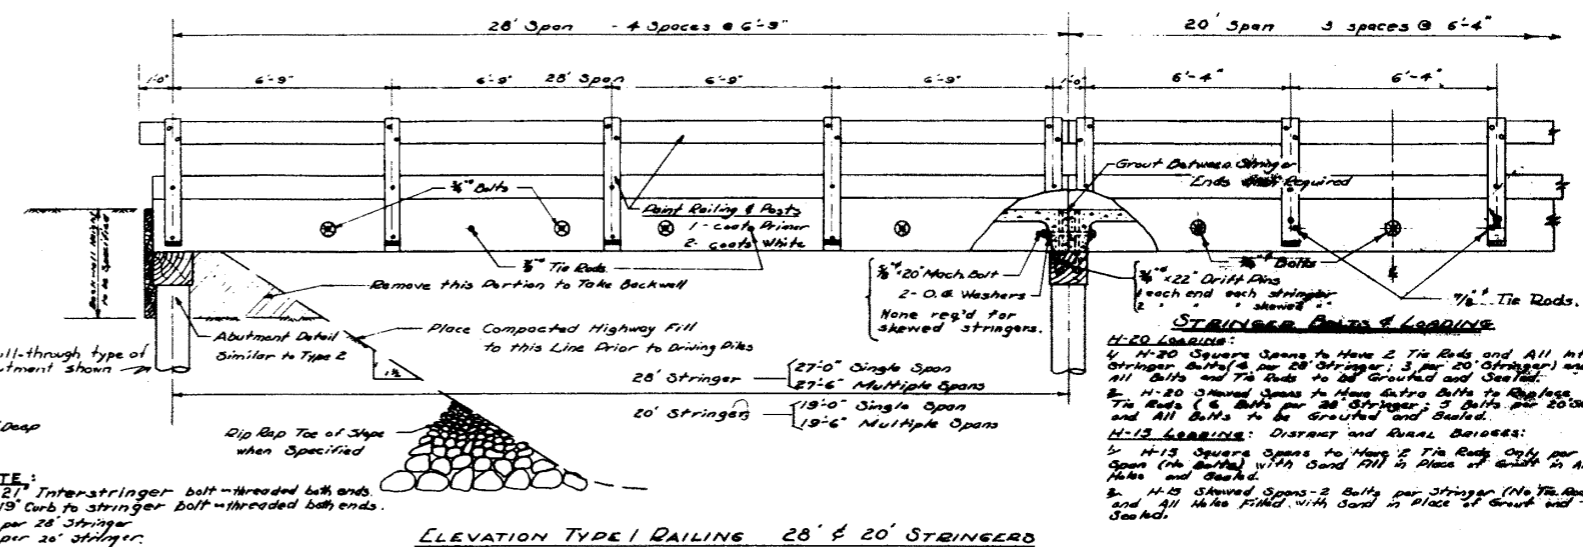 28' Span - 4 Spaces @ 6'-9"
20' Span 3 spaces @ 6'-4"
1'-0" 6'-9" 6'-9" 28' Span 6'-9" 6'-9" 1'-0" 6'-4" 6'-4"
Grout Between Stringer
Ends Required
Bolts
Paint Railing & Posts
1 - Coats Primer
2 - Coats White
Tie Rods
Backwall Height
to be Specified
Remove this Portion to Take Backwall
x20" Mach Bolt
2 - O.G. Washers
None req'd for
skewed stringers.
Bolts
x 22" Drift Pins
1 each end each stringer
2 " " " skewed "
7/8"ø Tie Rods.
Abutment Detail
Similar to Type 2
Place Compacted Highway Fill
to this Line Prior to Driving Piles
ull-through type of
utment shown
1½
28' Stringer 27'-0" Single Span
27'-6" Multiple Spans
20' Stringers 19'-0" Single Span
19'-6" Multiple Spans
Rip Rap Toe of Slope
when Specified
Deep
TE:
21" Interstringer bolt - threaded both ends.
19" Curb to stringer bolt - threaded both ends.
per 28' Stringer
per 20' Stringer.
STRINGER BOLTS & LOADING
H-20 LOADING:
1/ H-20 Square Spans to Have 2 Tie Rods and All Int
Stringer Bolts (4 per 28' Stringer; 3 per 20' Stringer) and
All Bolts and Tie Rods to be Grouted and Sealed.
2/ H-20 Skewed Spans to Have Extra Bolts to Replace
Tie Rods (6 Bolts per 28' Stringer; 5 Bolts per 20' St
and All Bolts to be Grouted and Sealed.
H-15 LOADING: DISTRICT AND RURAL BRIDGES:
1/ H-15 Square Spans to Have 2 Tie Rods Only per
Span (No Bolts) with Sand Fill in Place of Grout in A
Holes and Sealed.
2/ H-15 Skewed Spans - 2 Bolts per Stringer (No Tie Ro
and All Holes Filled with Sand in Place of Grout and
Sealed.
ELEVATION TYPE 1 RAILING 28' & 20' STRINGERS